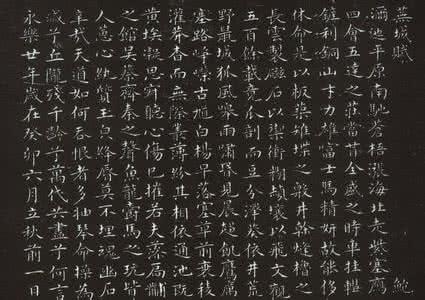 蕪城賦 鮑
瀰迆平原南馳蒼梧漲海北走紫塞鴈
四會五達之莊當昔全盛之時車挂轊
鏟利銅山才力雄富士馬精妍故能侈
休命是以板築雉堞之殷井幹烽櫓之
長雲製磁石以禦衝糊赬壤以飛文觀
五百餘載竟瓜剖而豆分澤葵依井荒
野鼠城狐風嘷雨嘯昏見晨趨飢鷹厲
塞路崢嶸古馗白楊早落塞草前衰稜
灌莽杳而無際叢薄紛其相依通池既
黃埃凝思寂聽心傷已摧若夫藻扃黼
之館吳蔡齊秦之聲魚龍爵馬之玩皆
人蕙心紈質玉貌絳脣莫不埋魂幽石
阜哉天道如何吞恨者多抽琴命操為
滅兮丘隴殘千齡兮萬代共盡兮何言
永樂廿年歲在癸卯六月立秋前一日